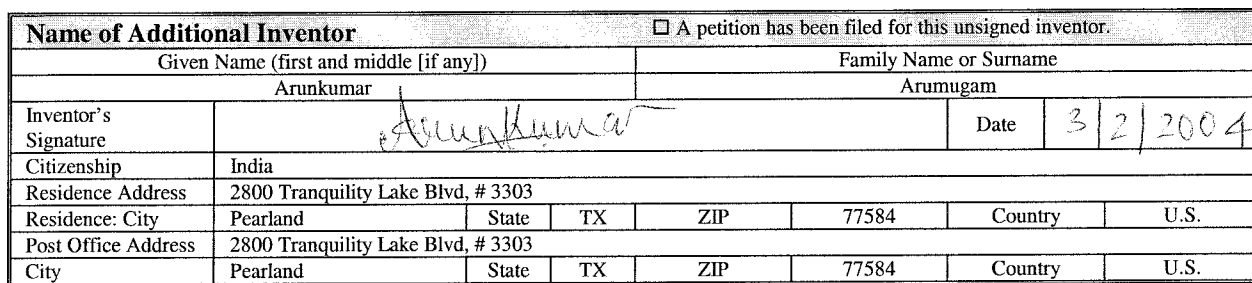 Name of Additional Inventor ☐ A petition has been filed for this unsigned inventor.
Given Name (first and middle [if any]) Family Name or Surname
Arunkumar Arumugam
Inventor's Signature Arunkumar Date 3/2/2004
Citizenship India
Residence Address 2800 Tranquility Lake Blvd, # 3303
Residence: City Pearland State TX ZIP 77584 Country U.S.
Post Office Address 2800 Tranquility Lake Blvd, # 3303
City Pearland State TX ZIP 77584 Country U.S.